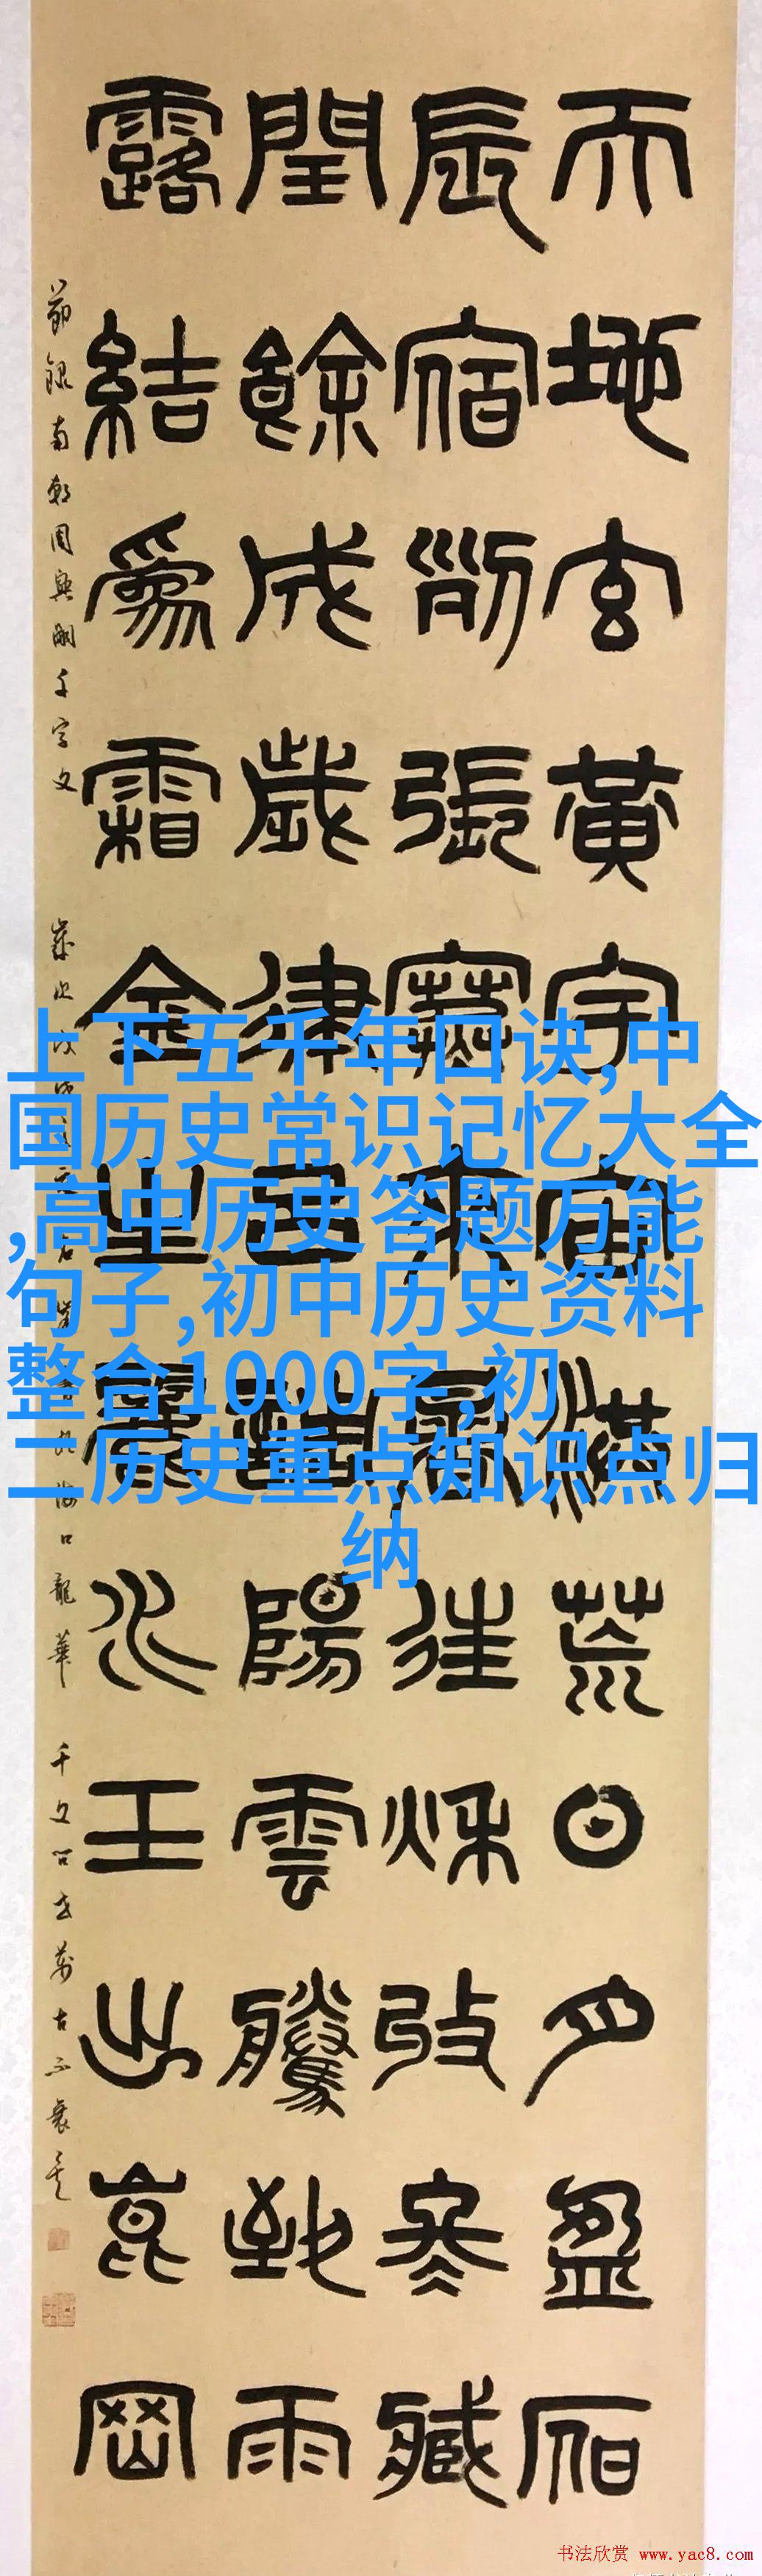 天地玄黃宇宙洪荒日月盈昃
辰宿列張寒來暑往秋收冬藏
閏餘成歲律呂調陽雲騰致雨
露結爲霜金生麗水玉出崑岡
節録南朝周興嗣千字文
海口龍華
上下五千年口诀,中
国历史常识记忆大全
,高中历史答题万能
句子,初中历史资料
整合1000字,初
二历史重点知识点归
纳
书法欣赏 www.yac8.com